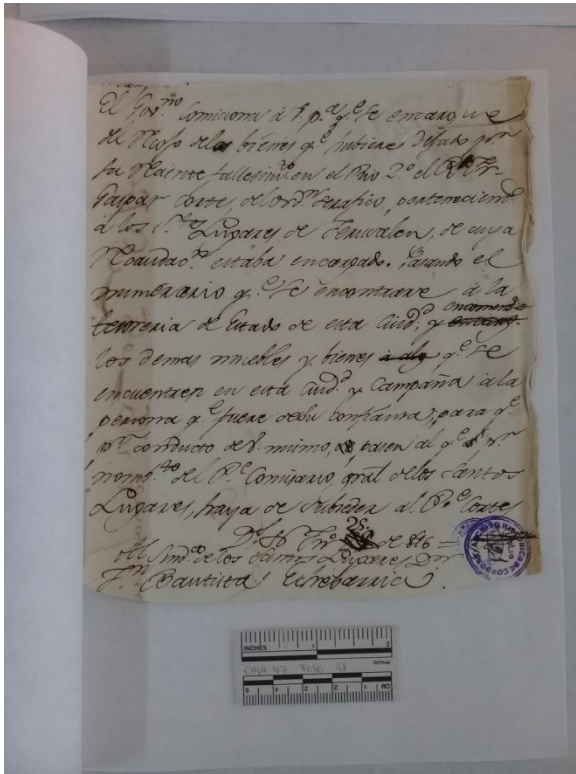 El Gov.no Comiciona á V. p.a q.e se encargue
de Recojo de los bienes q.e hubiere Dejado p.r
su Reciente fallesim.to en el Rio 2.o el R. P. Fr.
Gaspar Corte, del ord.n Serafico, perteneciend.
á los S.tos Lugares de Jerusalen, de cuya
Recaudac.n estaba encargado. Pasando el
numerario q.e se encontrare á la
tesoreria de Estado de esta Ciud.d, y
los demas muebles y bienes q.e se
encuentren en esta Ciud.d y Campaña á la
persona q.e fuere de su confianza, para q.e
p.r conducto de V. mismo, pasen al q.e p.r
nomb.to de el R.e Comisario gral de los Santos
Lugares, haya de subceder al P.e Corte
25 de 816=
al Sind.co de los Santos Lugares D.n
J.n Bautista Echebarria.
INCHES 1 2
CAJA 47 Folio 21
CM 1 2 3 4 5